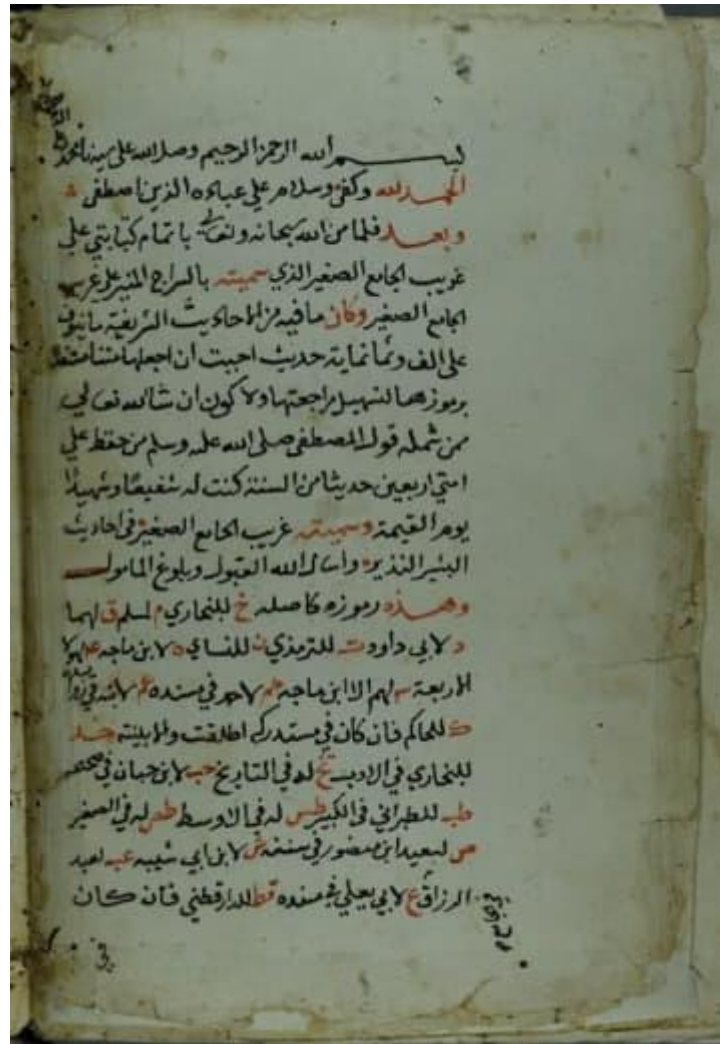 بسم الله الرحمن الرحيم وصلى الله على سيدنا محمد
الحمد لله وكفى وسلام على عباده الذين اصطفى
وبعد فلما من الله سبحانه وتعالى باتمام كتابتي على
غريب الجامع الصغير الذي سميته بالسراج المنير على غريب
الجامع الصغير وكان ما فيه من الاحاديث الشريفة ما ينوف
على الف وثمانماية حديث احببت ان اجعلها متنا مستقلا
برموزها لتسهيل مراجعتها ولاكون ان شا الله تعالى
ممن شمله قول المصطفى صلى الله عليه وسلم من حفظ على
امتي اربعين حديثا من السنة كنت له شفيعا وشهيدا
يوم القيمة وسميته غريب الجامع الصغير في احاديث
البشير النذير واسال الله القبول وبلوغ المامول
وهذه رموزه كاصله خ للبخاري م لمسلم ق لهما
د لابي داود ت للترمذي ن للنساي ه لابن ماجه لهولا
الاربعة لهم الا ابن ماجه حم لاحمد في مسنده عم لابنه في
ك للحاكم فان كان في مستدركه اطلقت والا بينته خد
للبخاري في الادب تخ له في التاريخ حب لابن حبان في صحيحه
طب للطبراني في الكبير طس له في الاوسط طص له في الصغير
ص لسعيد ابن منصور في سننه ش لابن ابي شيبه عب لعبد
الرزاق ع لابي يعلي في مسنده قط للدارقطني فان كان
في